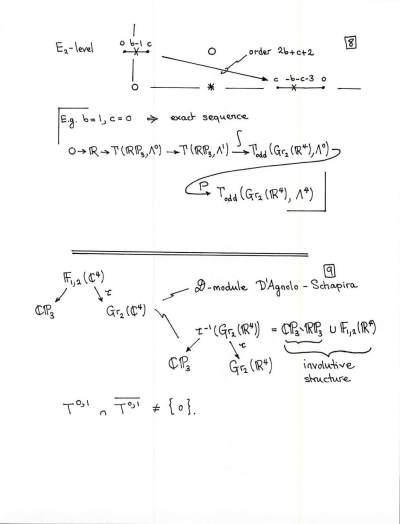 8
E₂-level
0 b-1 c
0
order 2b+c+2
c -b-c-3 0
0
*
E.g. b=1, c=0 ⇒ exact sequence
0→ℝ→Γ(ℝℙ₃,Λ⁰)→Γ(ℝℙ₃,Λ¹) ∫→ Γodd(Gr₂(ℝ⁴),Λ⁰)
P→ Γodd(Gr₂(ℝ⁴),Λ⁴)
9
𝔽₁,₂(ℂ⁴)
τ
ℂℙ₃ Gr₂(ℂ⁴)
𝒟-module D'Agnolo-Schapira
τ⁻¹(Gr₂(ℝ⁴)) = ℂℙ₃\ℝℙ₃ ∪ 𝔽₁,₂(ℝ⁴)
τ
ℂℙ₃ Gr₂(ℝ⁴)
involutive
structure
T⁰,¹ ∩ \overline{T⁰,¹} ≠ {0}.